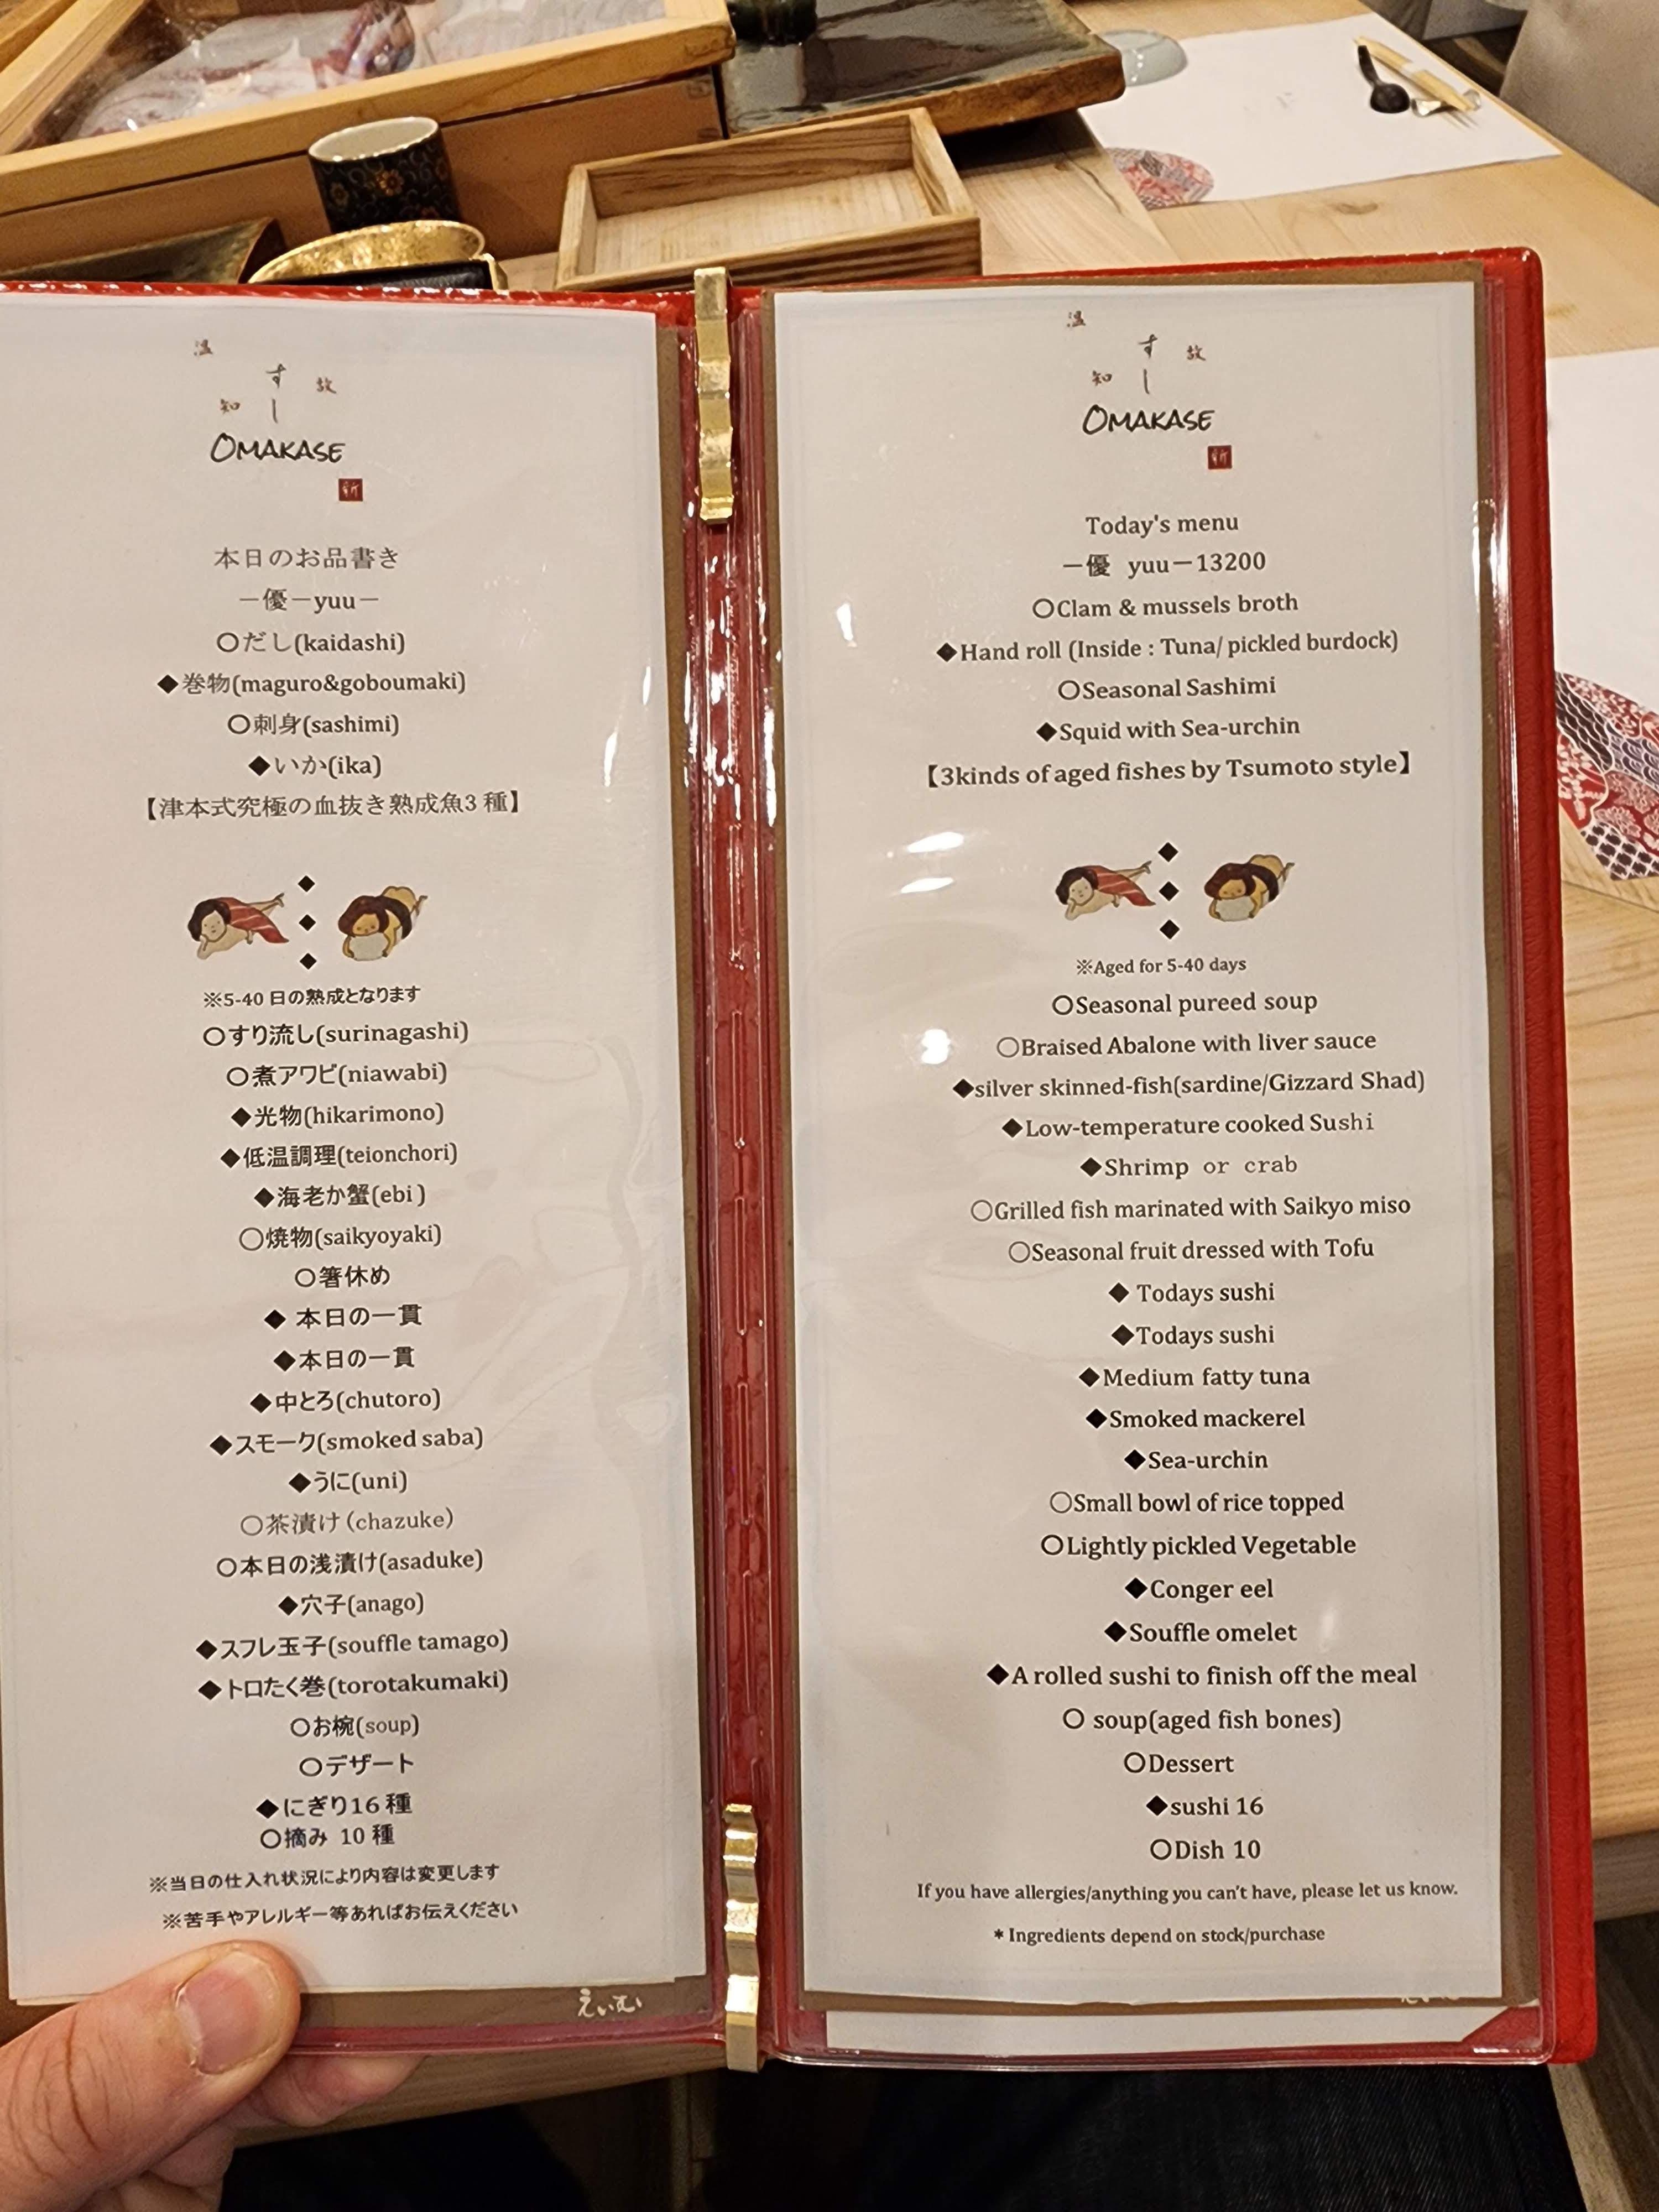 温
す
故
知
し
OMAKASE
本日のお品書き
－優－yuu－
〇だし(kaidashi)
◆巻物(maguro&goboumaki)
〇刺身(sashimi)
◆いか(ika)
【津本式究極の血抜き熟成魚3種】
◆
◆
◆
※5-40日の熟成となります
〇すり流し(surinagashi)
〇煮アワビ(niawabi)
◆光物(hikarimono)
◆低温調理(teionchori)
◆海老か蟹(ebi)
〇焼物(saikyoyaki)
〇箸休め
◆ 本日の一貫
◆本日の一貫
◆中とろ(chutoro)
◆スモーク(smoked saba)
◆うに(uni)
〇茶漬け(chazuke)
〇本日の浅漬け(asaduke)
◆穴子(anago)
◆スフレ玉子(souffle tamago)
◆トロたく巻(torotakumaki)
〇お椀(soup)
〇デザート
◆にぎり16種
〇摘み 10種
※当日の仕入れ状況により内容は変更します
※苦手やアレルギー等あればお伝えください
えいむ
温
す
故
知
し
OMAKASE
Today's menu
－優 yuu－13200
〇Clam & mussels broth
◆Hand roll (Inside : Tuna/ pickled burdock)
〇Seasonal Sashimi
◆Squid with Sea-urchin
【3kinds of aged fishes by Tsumoto style】
◆
◆
◆
※Aged for 5-40 days
〇Seasonal pureed soup
〇Braised Abalone with liver sauce
◆silver skinned-fish(sardine/Gizzard Shad)
◆Low-temperature cooked Sushi
◆Shrimp or crab
〇Grilled fish marinated with Saikyo miso
〇Seasonal fruit dressed with Tofu
◆ Todays sushi
◆Todays sushi
◆Medium fatty tuna
◆Smoked mackerel
◆Sea-urchin
〇Small bowl of rice topped
〇Lightly pickled Vegetable
◆Conger eel
◆Souffle omelet
◆A rolled sushi to finish off the meal
〇 soup(aged fish bones)
〇Dessert
◆sushi 16
〇Dish 10
If you have allergies/anything you can't have, please let us know.
* Ingredients depend on stock/purchase